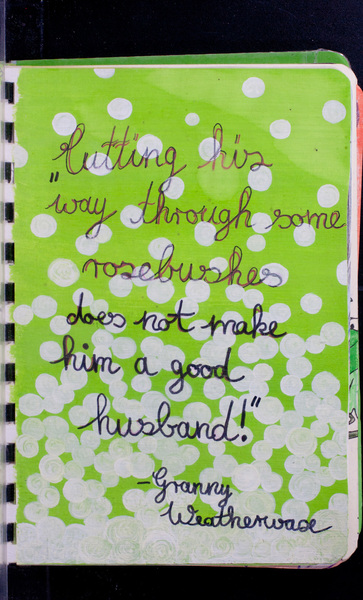 Cutting his
"way through some
rosebushes
does not make
him a good
husband!"
-Granny
Weatherwaxe